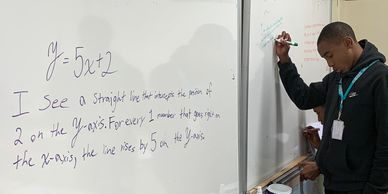 y = 5x+2
I see a straight line that intercepts the position of
2 on the y-axis. For every 1 number that goes right on
the x-axis, the line rises by 5 on the y-axis.